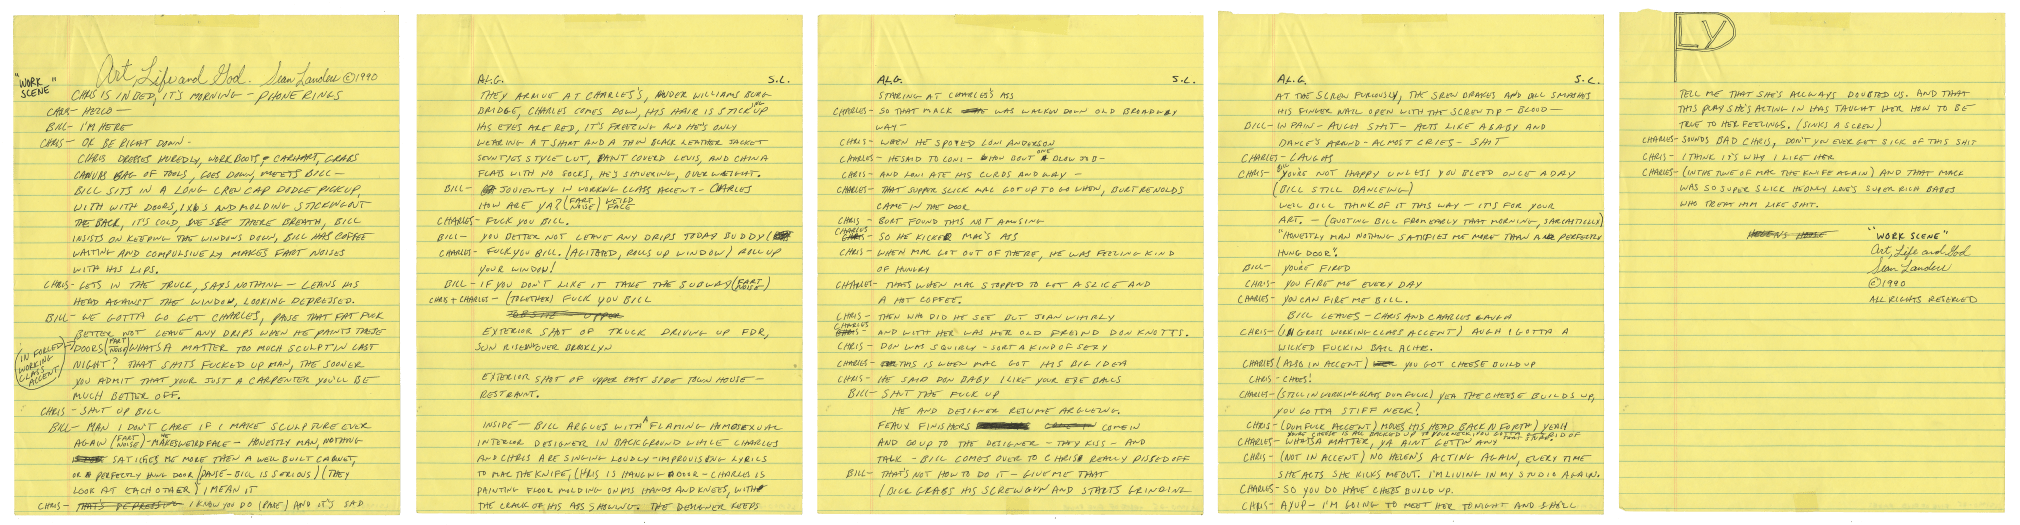 Art, Life and God. Sean Landers ©1990
"WORK
SCENE"
CHRIS IS IN BED, IT'S MORNING - PHONE RINGS
CHRIS - HELLO -
BILL - I'M HERE
CHRIS - OK BE RIGHT DOWN -
CHRIS DRESSES HUREDLY, WORK BOOTS, CARHART, GRABS
CANVAS BAG OF TOOLS, GOES DOWN, MEETS BILL -
BILL SITS IN A LONG CREW CAP DODGE PICKUP,
WITH WITH DOORS, 1X6S AND MOLDING STICKING OUT
THE BACK, IT'S COLD, WE SEE THERE BREATH, BILL
INSISTS ON KEEPING THE WINDOWS DOWN, BILL HAS COFFEE
WAITING AND COMPULSIVELY MAKES FART NOISES
WITH HIS LIPS.
CHRIS - GETS IN THE TRUCK, SAYS NOTHING - LEANS HIS
HEAD AGAINST THE WINDOW, LOOKING DEPRESSED.
BILL - WE GOTTA GO GET CHARLES, PAUSE THAT FAT FUCK
BETTER NOT LEAVE ANY DRIPS WHEN HE PAINTS THESE
IN FORCED
WORKING
CLASS
ACCENT
DOORS (FART NOISE) WHATSA MATTER TOO MUCH SCULPTIN LAST
NIGHT? THAT SHITS FUCKED UP MAN, THE SOONER
YOU ADMIT THAT YOUR JUST A CARPENTER YOU'LL BE
MUCH BETTER OFF.
CHRIS - SHUT UP BILL
BILL - MAN I DON'T CARE IF I MAKE SCULPTURE EVER
AGAIN (FART NOISE) - HE MAKES WEIRD FACE - HONESTLY MAN, NOTHING
SATISFIES ME MORE THEN A WELL BUILT CABINET,
OR A PERFECTLY HUNG DOOR (PAUSE - BILL IS SERIOUS) (THEY
LOOK AT EACH OTHER) I MEAN IT
CHRIS - THAT'S DEPRESSING I KNOW YOU DO (PAUSE) AND IT'S SAD
AL.G. S.L.
THEY ARRIVE AT CHARLES'S, UNDER WILLIAMS BURG
BRIDGE, CHARLES COMES DOWN, HIS HAIR IS STICKING UP
HIS EYES ARE RED, IT'S FREEZING AND HE'S ONLY
WEARING A T SHIRT AND A THIN BLACK LEATHER JACKET
SEVNTYIES STYLE CUT, PAINT COVERD LEVIS, AND CHINA
FLATS WITH NO SOCKS, HE'S SHIVERING, OVERWEIGHT.
BILL - JOVIENTLY IN WORKING CLASS ACCENT - CHARLES
HOW ARE YA? (FART NOISE) WEIRD FACE
CHARLES - FUCK YOU BILL.
BILL - YOU BETTER NOT LEAVE ANY DRIPS TODAY BUDDY
CHARLES - FUCK YOU BILL. (AGITATED, ROLLS UP WINDOW) ROLL UP
YOUR WINDOW!
BILL - IF YOU DON'T LIKE IT TAKE THE SUBWAY (FART NOISE)
CHRIS + CHARLES - (TOGETHER) FUCK YOU BILL
EXTERIOR SHOT OF TRUCK DRIVING UP FDR,
SUN RISEN OVER BROOKLYN
EXTERIOR SHOT OF UPPER EAST SIDE TOWN HOUSE -
RESTRAUNT.
INSIDE - BILL ARGUES WITH A FLAMING HOMOSEXUAL
INTERIOR DESIGNER IN BACKGROUND WHILE CHARLES
AND CHRIS ARE SINGING LOUDLY - IMPROVISING LYRICS
TO MAC THE KNIFE, CHRIS IS HANGING A DOOR - CHARLES IS
PAINTING FLOOR MOLDING ON HIS HANDS AND KNEES, WITH
THE CRACK OF HIS ASS SHOWING. THE DESIGNER KEEPS
AL.G. S.L.
STARING AT CHARLES'S ASS
CHARLES - SO THAT MACK WAS WALKUN DOWN OLD BROADWAY
WAY -
CHRIS - WHEN HE SPOYED LONI ANDERSON
CHARLES - HE SAID TO LONI - HOW BOUT ONE BLOW JOB -
CHRIS - AND LONI ATE HIS CURDS AND WAY -
CHARLES - THAT SUPPER SLICK MAC GOT UP TO GO WHEN, BURT RENOLDS
CAME IN THE DOOR
CHRIS - BURT FOUND THIS NOT AMUSING
CHARLES - SO HE KICKED MAC'S ASS
CHRIS - WHEN MAC GOT OUT OF THERE, HE WAS FEELING KIND
OF HUNGRY
CHARLES - THATS WHEN MAC STOPPED TO GET A SLICE AND
A HOT COFFEE.
CHRIS - THEN WHO DID HE SEE BUT JOAN WIMPLY
CHARLES - AND WITH HER WAS HER OLD FREIND DON KNOTTS.
CHRIS - DON WAS SQUIRLY - SORT A KIND OF SEXY
CHARLES - THIS IS WHEN MAC GOT HIS BIG IDEA
CHRIS - HE SAID DON BABY I LIKE YOUR EYE BALLS
BILL - SHUT THE FUCK UP
HE AND DESIGNER RESUME ARGUEING.
FEAUX FINISHERS COME IN
AND GO UP TO THE DESIGNER - THEY KISS - AND
TALK - BILL COMES OVER TO CHRIS REALLY PISSED OFF
BILL - THAT'S NOT HOW TO DO IT - GIVE ME THAT
(BILL GRABS HIS SCREWGUN AND STARTS GRINDING
AL.G. S.L.
AT THE SCREW FURIOUSLY, THE SREW BRAKES AND BILL SMASHES
HIS FINGER NAIL OPEN WITH THE SCREW TIP - BLOOD -
BILL - IN PAIN - AUGH SHIT - ACTS LIKE A BABY AND
DANCE'S AROUND - ALMOST CRIES - SHIT
CHARLES - LAUGHS
CHRIS - BILL YOU'RE NOT HAPPY UNLESS YOU BLEED ONCE A DAY
(BILL STILL DANCEING)
WELL BILL THINK OF IT THIS WAY - IT'S FOR YOUR
ART. - (QUOTING BILL FROM EARLY THAT MORNING, SARCASTICALLY)
"HONESTLY MAN NOTHING SATISFIES ME MORE THAN A PERFECTLY
HUNG DOOR".
BILL - YOU'RE FIRED
CHRIS - YOU FIRE ME EVERY DAY
CHARLES - YOU CAN FIRE ME BILL.
BILL LEAVES - CHRIS AND CHARLES LAUGH
CHRIS - (IN GROSS WORKING CLASS ACCENT) AUGH I GOTTA A
WICKED FUCKIN BALL ACHE.
CHARLES (ALSO IN ACCENT) YOU GOT CHEESE BUILD UP
CHRIS - CHEES!
CHARLES - (STILL IN WORKING CLASS DUM FUCK) YEA THE CHEESE BUILDS UP,
YOU GOTTA STIFF NECK?
CHRIS - (DUM FUCK ACCENT) (MOVES HIS HEAD BACK N FORTH) YEAH
YOURE CHEESE IS ALL BACKED UP TO YOUR NECK, YOU GOTTA GET RID OF THAT STUFF.
CHARLES - WHATSA MATTER, YA AINT GETTIN ANY
CHRIS - (NOT IN ACCENT) NO HELEN'S ACTING AGAIN, EVERY TIME
SHE ACTS SHE KICKS ME OUT. I'M LIVING IN MY STUDIO AGAIN.
CHARLES - SO YOU DO HAVE CHEES BUILD UP.
CHRIS - AYUP - I'M GOING TO MEET HER TONIGHT AND SHE'LL
LYD
TELL ME THAT SHE'S ALLWAYS DOUBTED US. AND THAT
THIS PLAY SHE'S ACTING IN HAS TAUGHT HER HOW TO BE
TRUE TO HER FEELINGS. (SINKS A SCREW)
CHARLES - SOUNDS BAD CHRIS, DON'T YOU EVER GET SICK OF THIS SHIT
CHRIS - I THINK IT'S WHY I LIKE HER
CHARLES - (IN THE TUNE OF MAC THE KNIFE AGAIN) AND THAT MACK
WAS SO SUPER SLICK HE ONLY LOVE'S SUPER RICH BABES
WHO TREAT HIM LIKE SHIT.
HELEN'S HOUSE
"WORK SCENE"
Art, Life and God
Sean Landers
©1990
ALL RIGHTS RESERVED